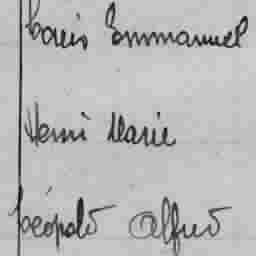 Louis Emmanuel
Henri Marie
Léopold Alfred